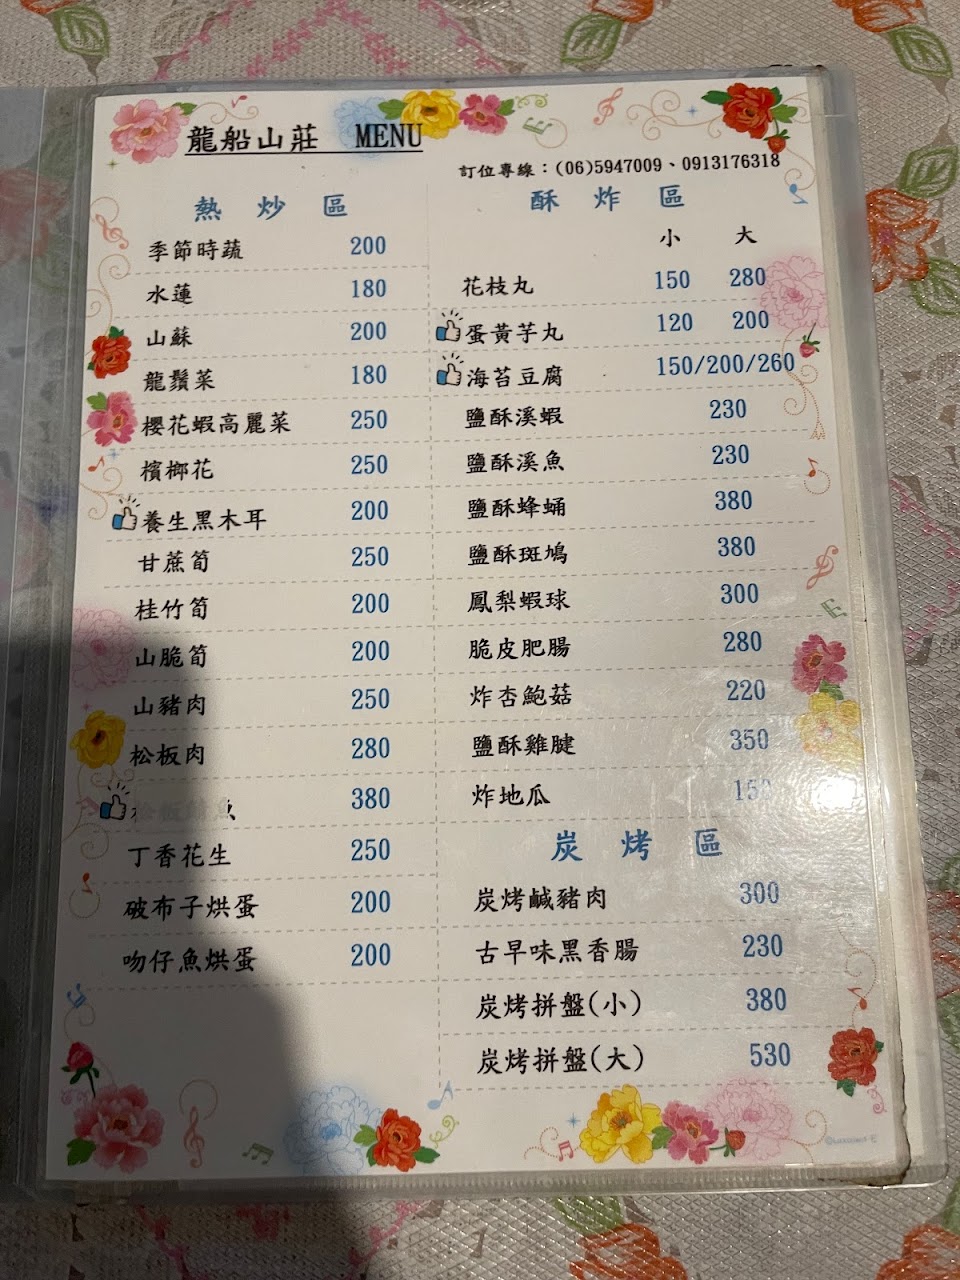 龍船山莊 MENU
訂位專線：(06)5947009、0913176318
熱炒區
季節時蔬 200
水蓮 180
山蘇 200
龍鬚菜 180
櫻花蝦高麗菜 250
檳榔花 250
養生黑木耳 200
甘蔗筍 250
桂竹筍 200
山脆筍 200
山豬肉 250
松板肉 280
380
丁香花生 250
破布子烘蛋 200
吻仔魚烘蛋 200
酥炸區
小 大
花枝丸 150 280
蛋黃芋丸 120 200
海苔豆腐 150/200/260
鹽酥溪蝦 230
鹽酥溪魚 230
鹽酥蜂蛹 380
鹽酥斑鳩 380
鳳梨蝦球 300
脆皮肥腸 280
炸杏鮑菇 220
鹽酥雞腱 350
炸地瓜 150
炭烤區
炭烤鹹豬肉 300
古早味黑香腸 230
炭烤拼盤(小) 380
炭烤拼盤(大) 530